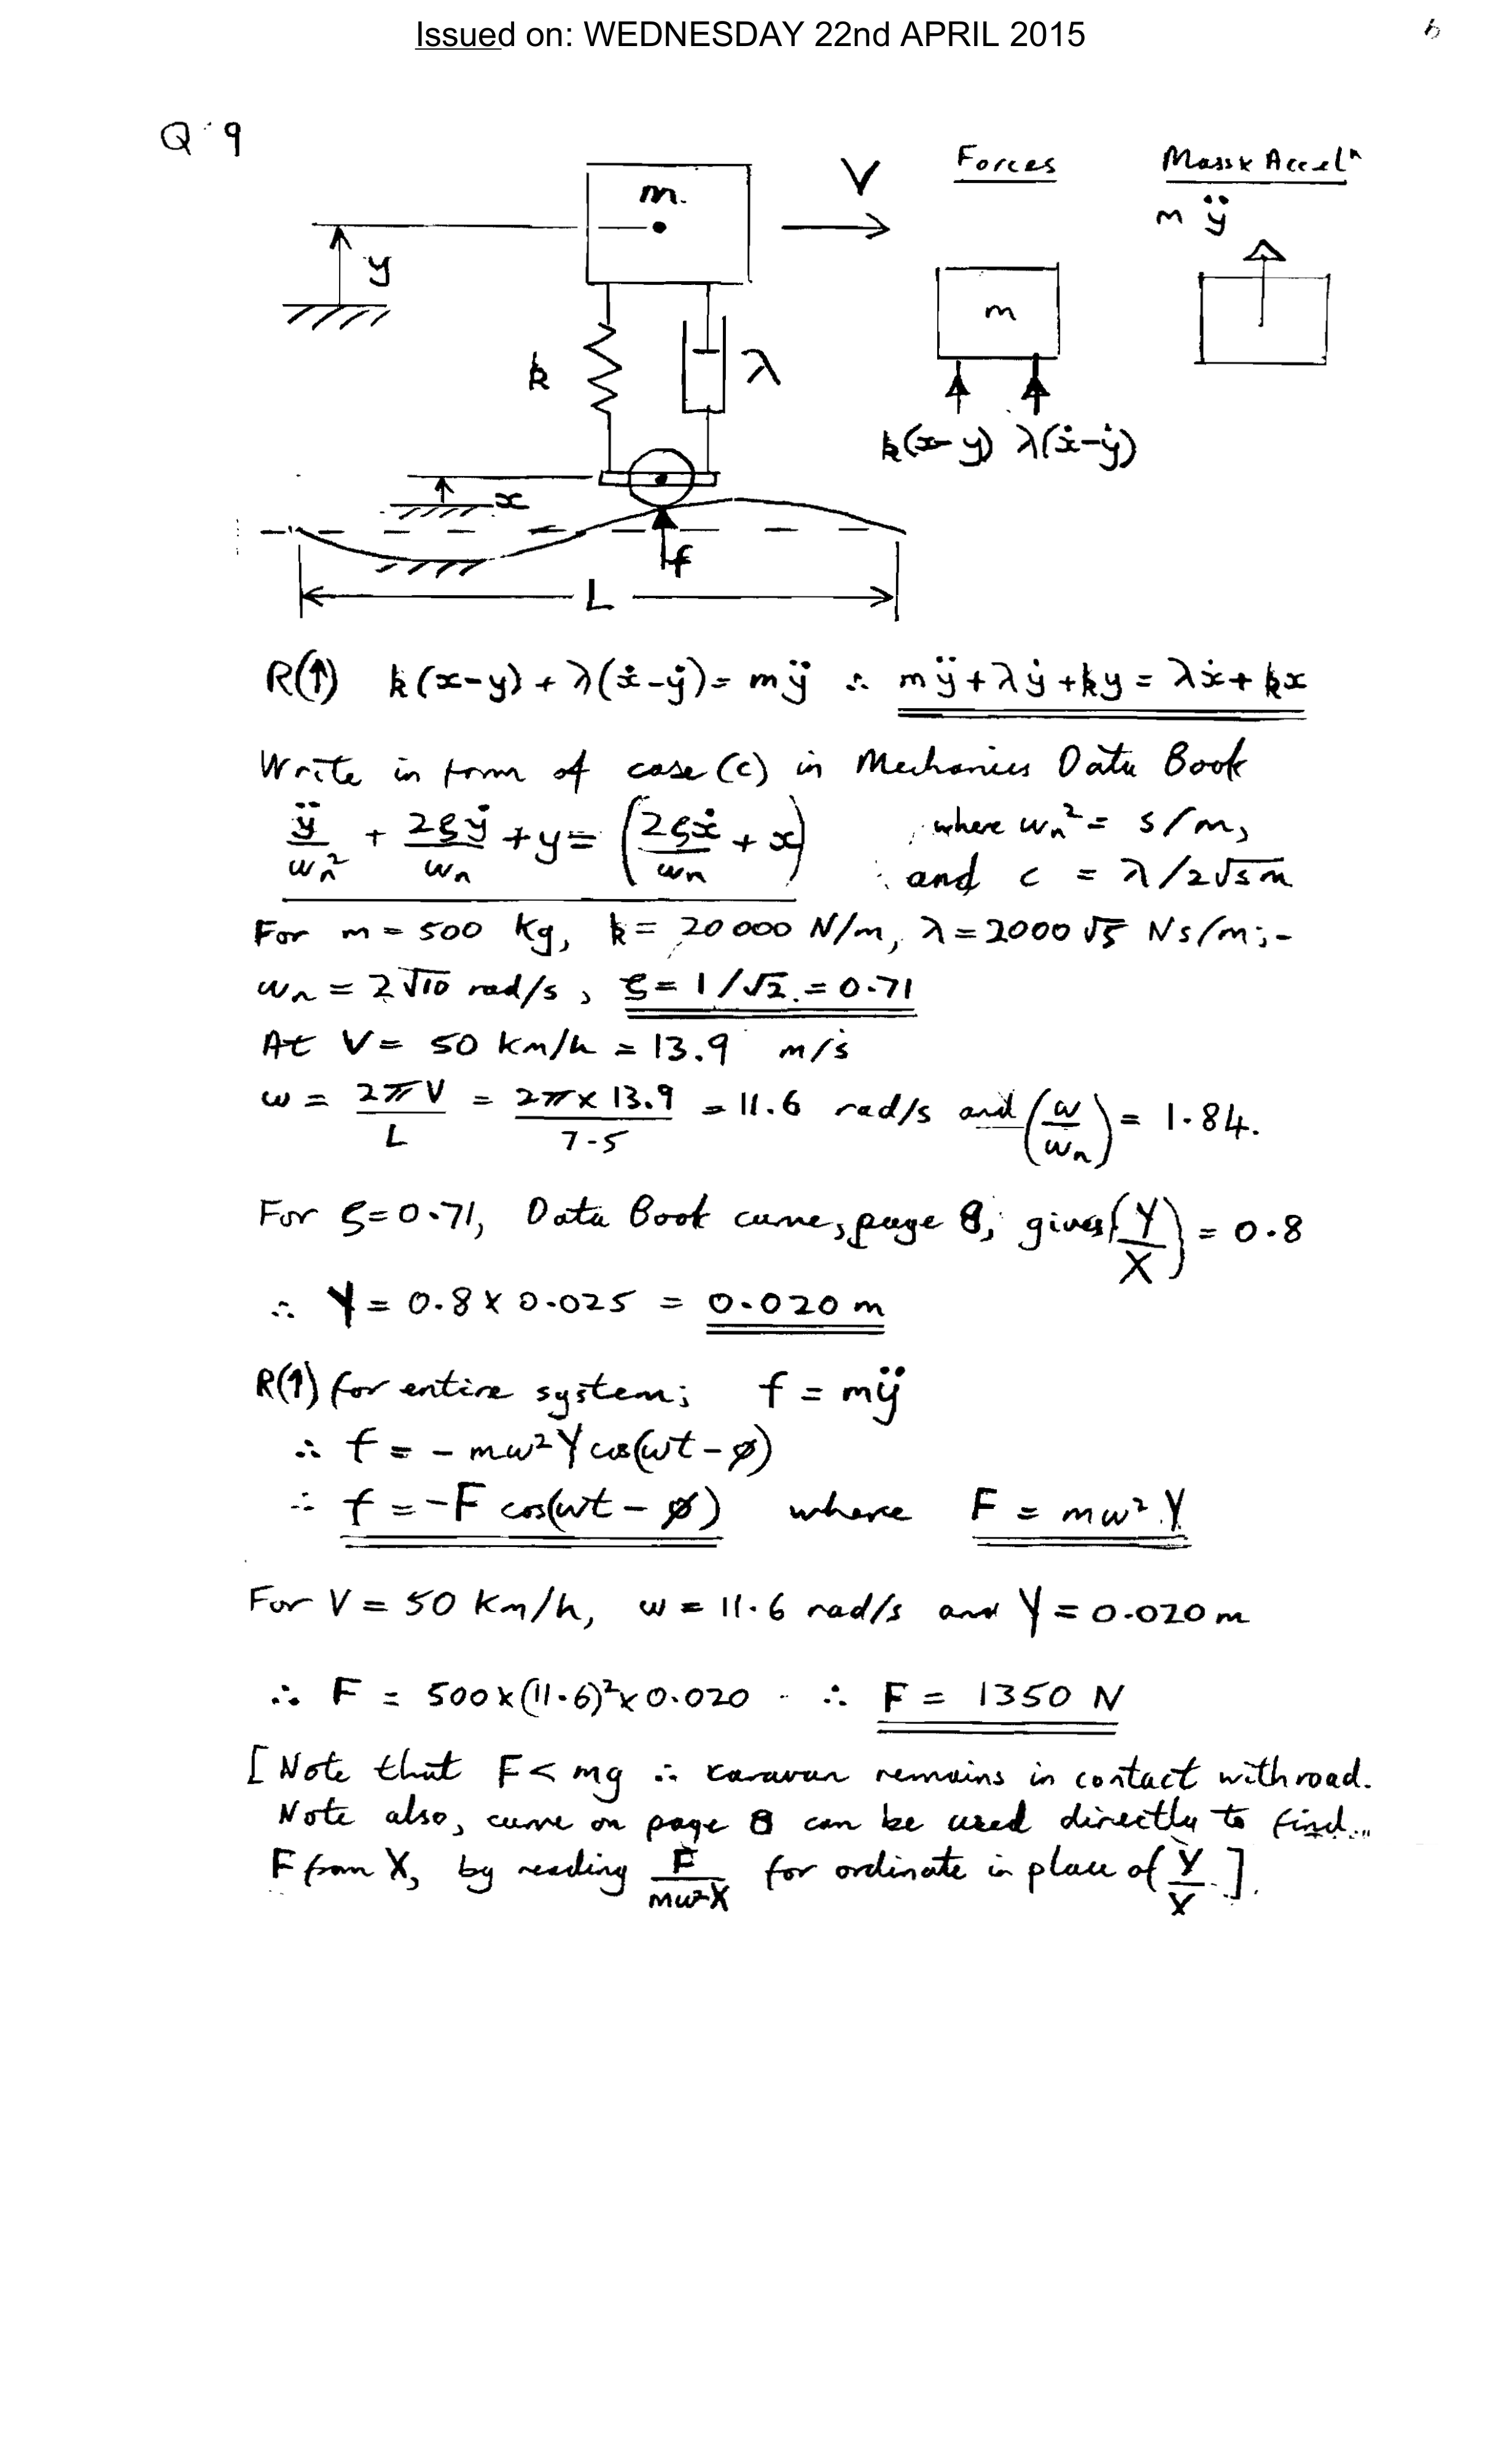 Issued on: WEDNESDAY 22nd APRIL 2015
Q 9
m
V
Forces
Mass x Accelⁿ
m ÿ
y
m
k
λ
k(x-y) λ(ẋ-ẏ)
x
f
L
R(↑) k(x-y) + λ(ẋ-ẏ) = mÿ ∴ mÿ + λẏ + ky = λẋ + kx
Write in form of case (c) in Mechanics Data Book
ÿ/ωn² + 2ςẏ/ωn + y = (2ςẋ/ωn + x) , where ωn² = s/m,
and c = λ/2√sm
For m = 500 kg, k = 20000 N/m, λ = 2000√5 Ns/m;-
ωn = 2√10 rad/s, ς = 1/√2 = 0.71
At V = 50 km/h = 13.9 m/s
ω = 2πV/L = 2π x 13.9/7.5 = 11.6 rad/s and (ω/ωn) = 1.84.
For ς = 0.71, Data Book curve, page 8, gives (Y/X) = 0.8
∴ Y = 0.8 x 0.025 = 0.020 m
R(↑) for entire system; f = mÿ
∴ f = - mω²Y cos(ωt - ø)
∴ f = -F cos(ωt - ø) where F = mω²Y
For V = 50 km/h, ω = 11.6 rad/s and Y = 0.020 m
∴ F = 500 x (11.6)² x 0.020 ∴ F = 1350 N
[Note that F < mg ∴ caravan remains in contact with road.
Note also, curve on page 8 can be used directly to find
F from X, by reading F/mω²X for ordinate in place of Y/X.].